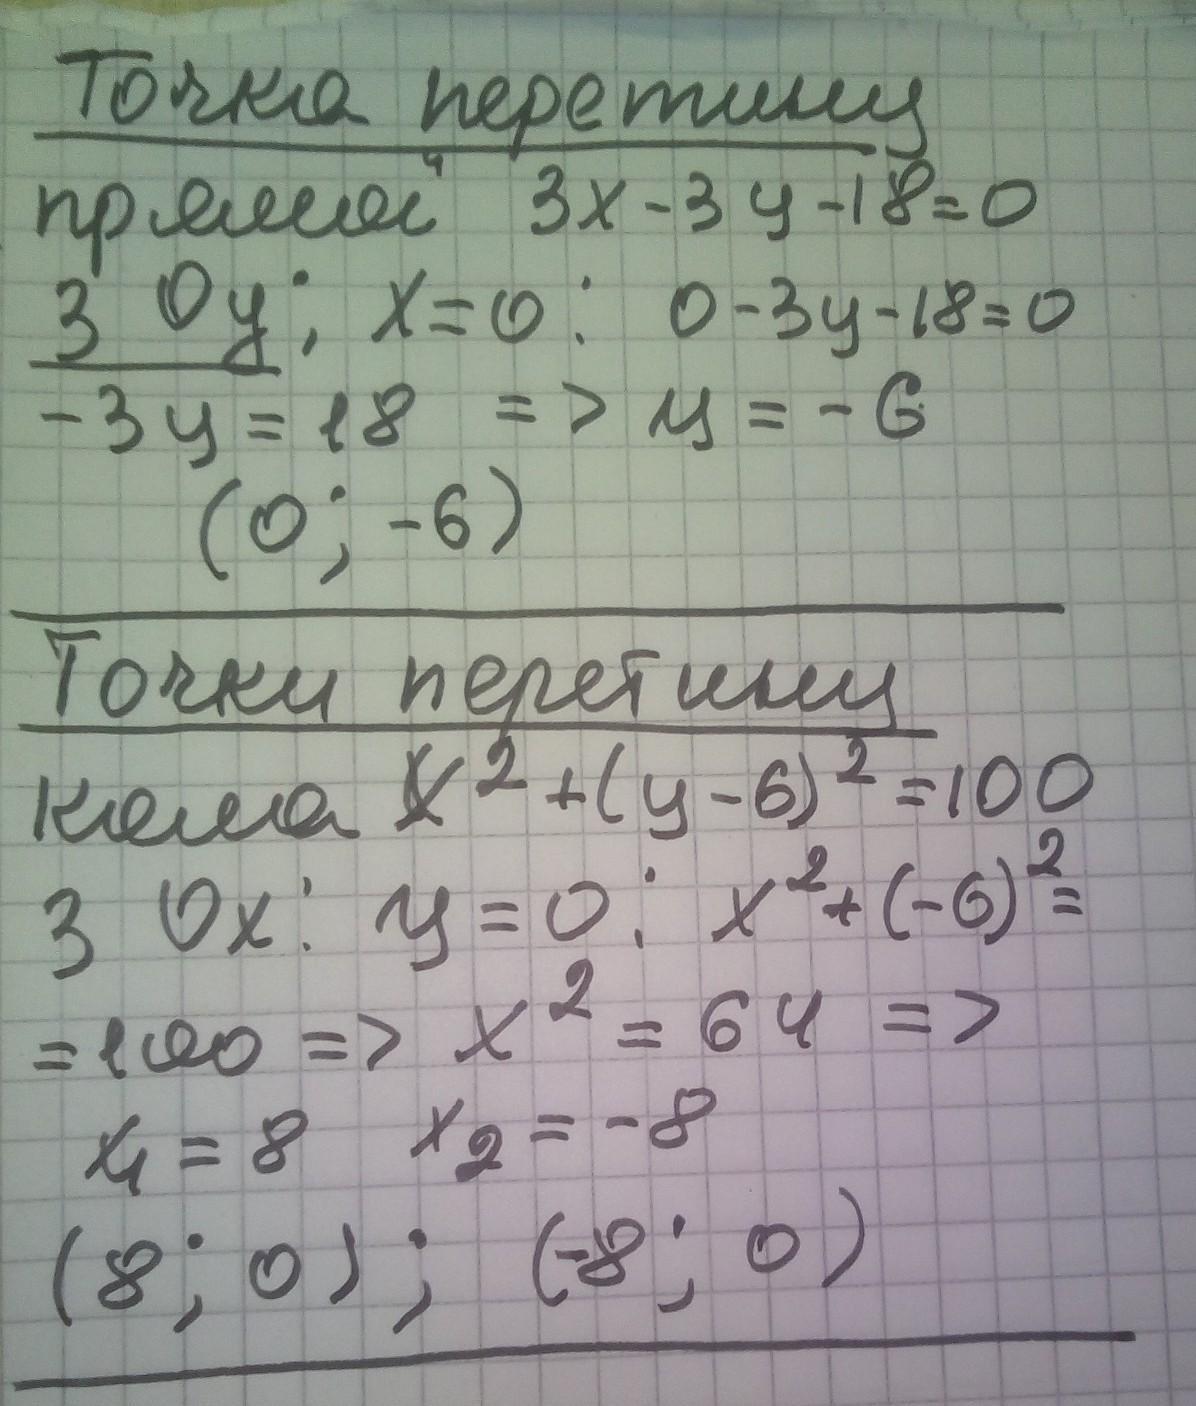 Точка перетину
прямої 3x-3y-18=0
З Oy; x=0: 0-3y-18=0
-3y=18 => y=-6
(0; -6)
Точки перетину
кола x²+(y-6)²=100
З Ox: y=0: x²+(-6)²=
=100 => x²=64 =>
x₁=8 x₂=-8
(8; 0); (-8; 0)